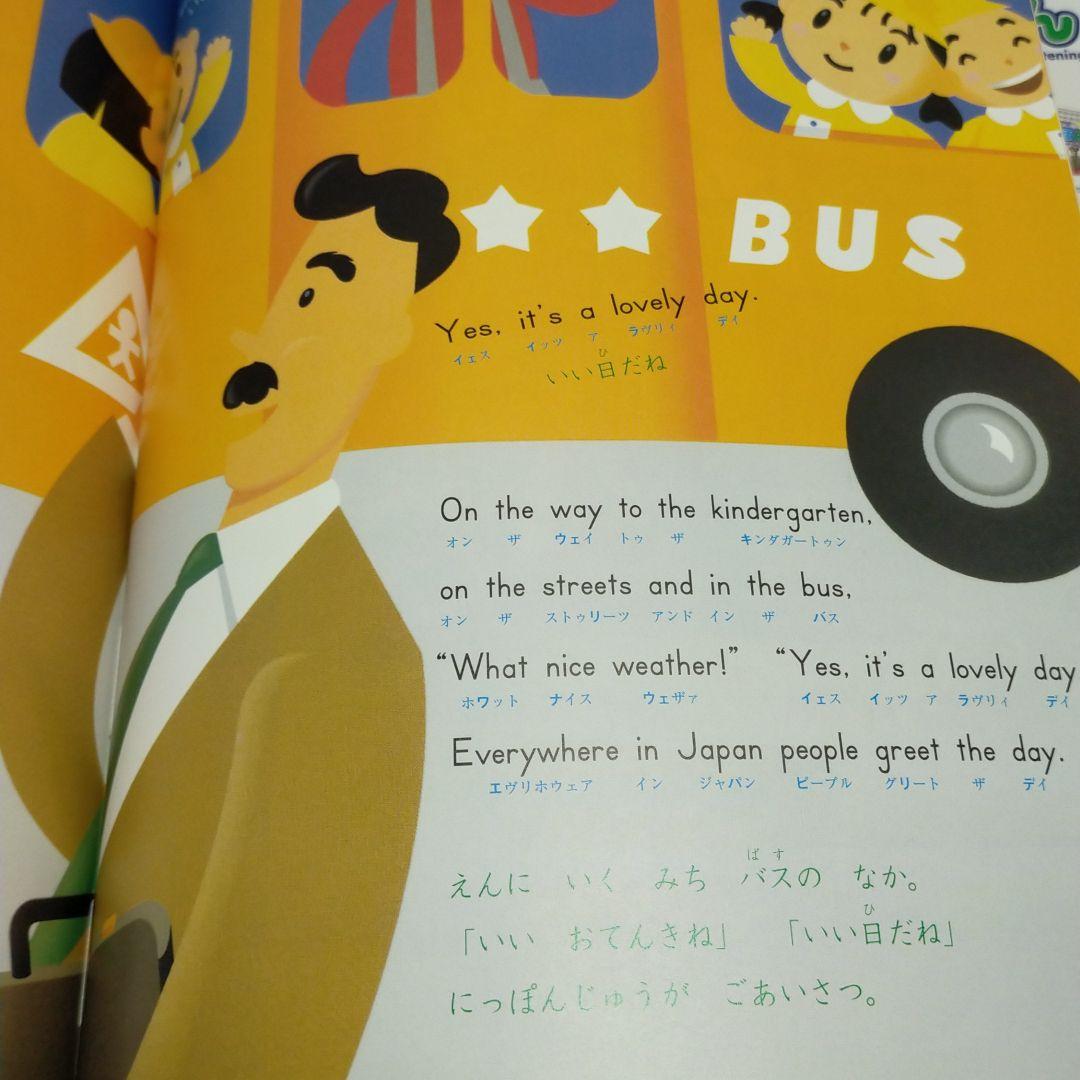 ening
BUS
Yes, it's a lovely day.
イェス イッツ ア ラヴリィ デイ
ひ
いい日だね
On the way to the kindergarten,
オン ザ ウェイ トゥ ザ キンダガートゥン
on the streets and in the bus,
オン ザ ストゥリーツ アンド イン ザ バス
“What nice weather!” “Yes, it's a lovely day
ホワット ナイス ウェザァ イェス イッツ ア ラヴリィ デイ
Everywhere in Japan people greet the day.
エヴリホウェア イン ジャパン ピープル グリート ザ デイ
ばす
えんに いく みち バスの なか。
ひ
「いい おてんきね」 「いい日だね」
にっぽんじゅうが ごあいさつ。